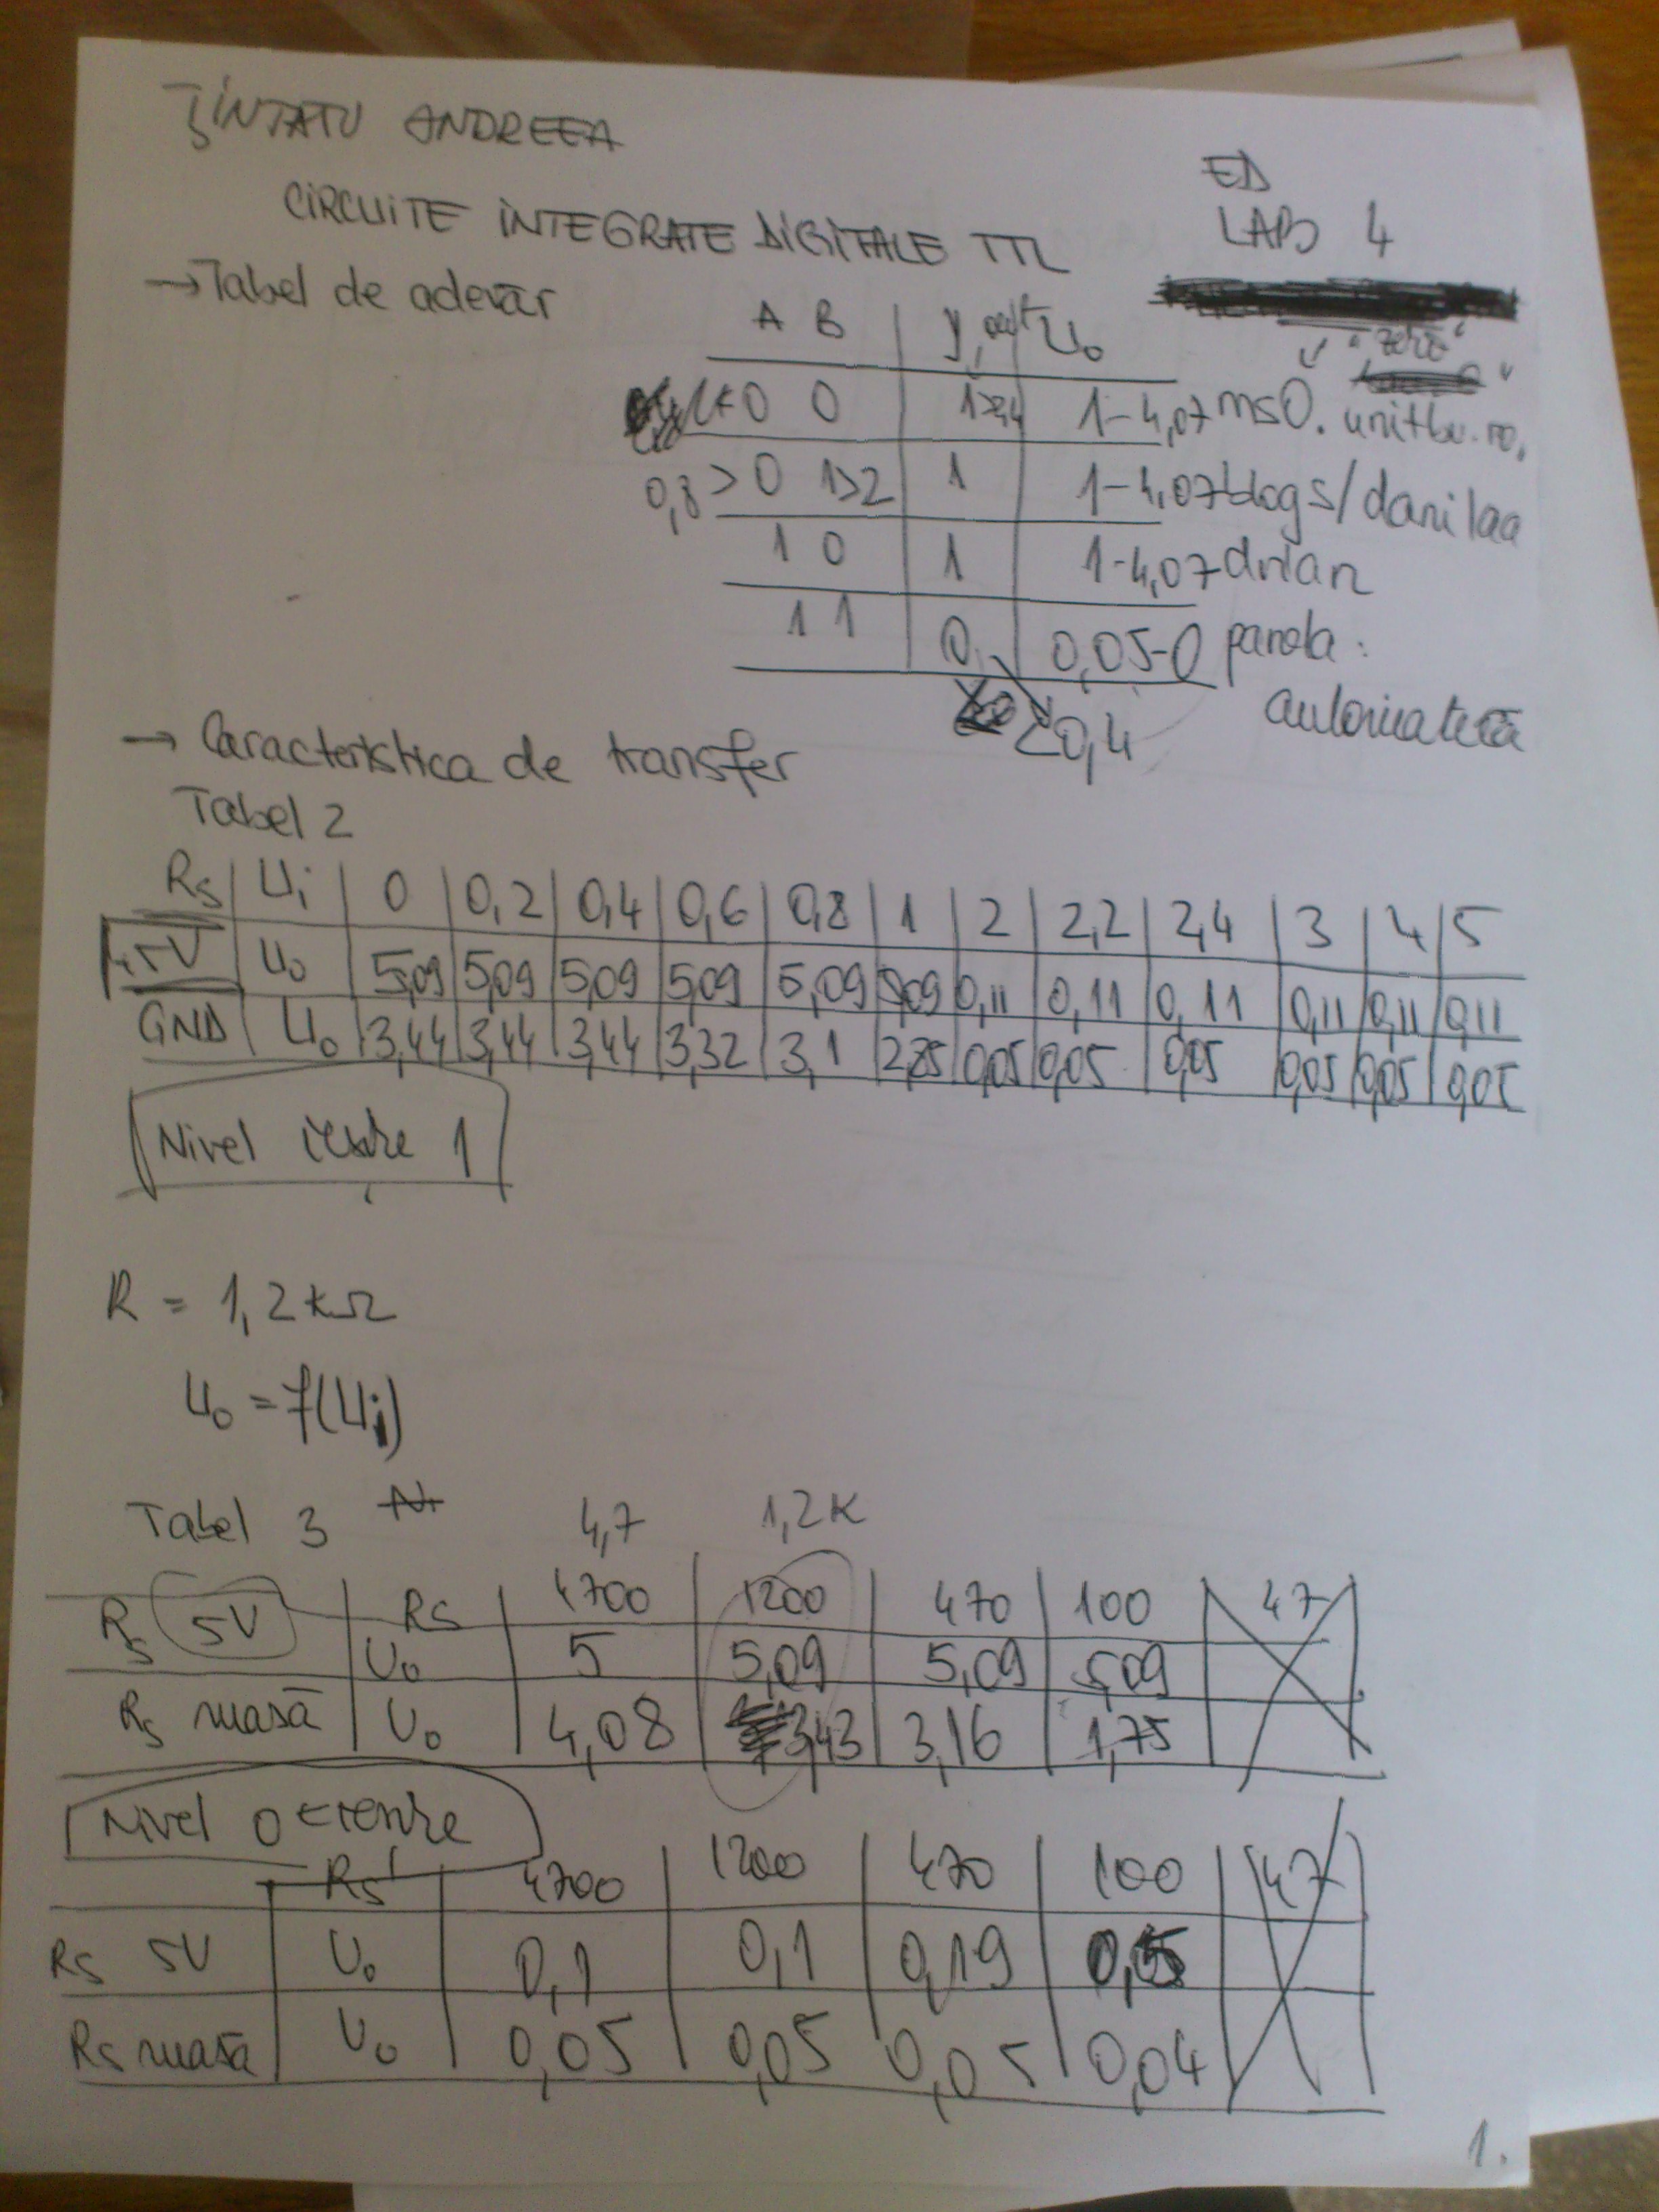 ȚINTATU ANDREEA
ED
LAB 4
CIRCUITE INTEGRATE DIGITALE TTL
→ Tabel de adevăr
"zero"
A B | y, out | U₀
0 0 | 1>2,4 | 1-4,07 ms0.unitbv.ro,
0,8 > 0 1>2 | 1 | 1-4,07 blogs/danilaa
1 0 | 1 | 1-4,07 drian
1 1 | 0 | 0,05-0 parola:
<0,4 automatica
→ Caracteristica de transfer
Tabel 2
Rs | Ui | 0 | 0,2 | 0,4 | 0,6 | 0,8 | 1 | 2 | 2,2 | 2,4 | 3 | 4 | 5
+5V | U₀ | 5,09 | 5,09 | 5,09 | 5,09 | 5,09 | 5,09 | 0,11 | 0,11 | 0,11 | 0,11 | 0,11 | 0,11
GND | U₀ | 3,44 | 3,44 | 3,44 | 3,32 | 3,1 | 2,85 | 0,05 | 0,05 | 0,05 | 0,05 | 0,05 | 0,05
Nivel iesire 1
R = 1,2 kΩ
U₀ = f(Ui)
Tabel 3 4,7 1,2K
Rs 5V | Rs | 4700 | 1200 | 470 | 100 | 47
U₀ | 5 | 5,09 | 5,09 | 5,09
Rs masă | U₀ | 4,08 | 3,43 | 3,16 | 1,75
Nivel 0 iesire
Rs | 4700 | 1200 | 470 | 100 | 47
Rs 5V | U₀ | 0,1 | 0,1 | 0,19 | 0,5
Rs masă | U₀ | 0,05 | 0,05 | 0,05 | 0,04
1.